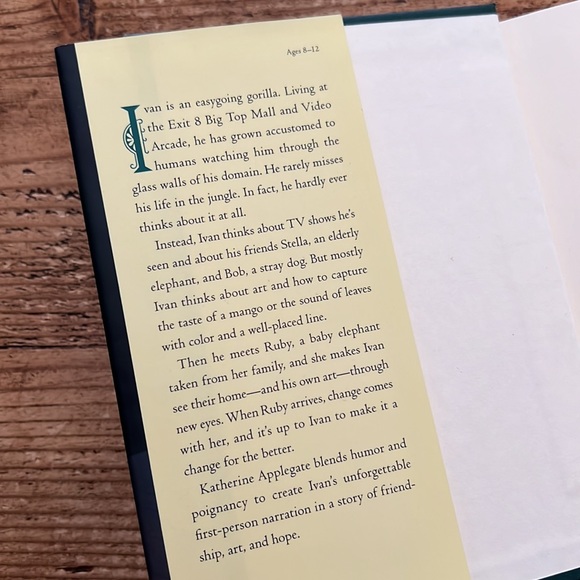 Ages 8–12
Ivan is an easygoing gorilla. Living at
the Exit 8 Big Top Mall and Video
Arcade, he has grown accustomed to
humans watching him through the
glass walls of his domain. He rarely misses
his life in the jungle. In fact, he hardly ever
thinks about it at all.
Instead, Ivan thinks about TV shows he's
seen and about his friends Stella, an elderly
elephant, and Bob, a stray dog. But mostly
Ivan thinks about art and how to capture
the taste of a mango or the sound of leaves
with color and a well-placed line.
Then he meets Ruby, a baby elephant
taken from her family, and she makes Ivan
see their home—and his own art—through
new eyes. When Ruby arrives, change comes
with her, and it's up to Ivan to make it a
change for the better.
Katherine Applegate blends humor and
poignancy to create Ivan's unforgettable
first-person narration in a story of friend-
ship, art, and hope.